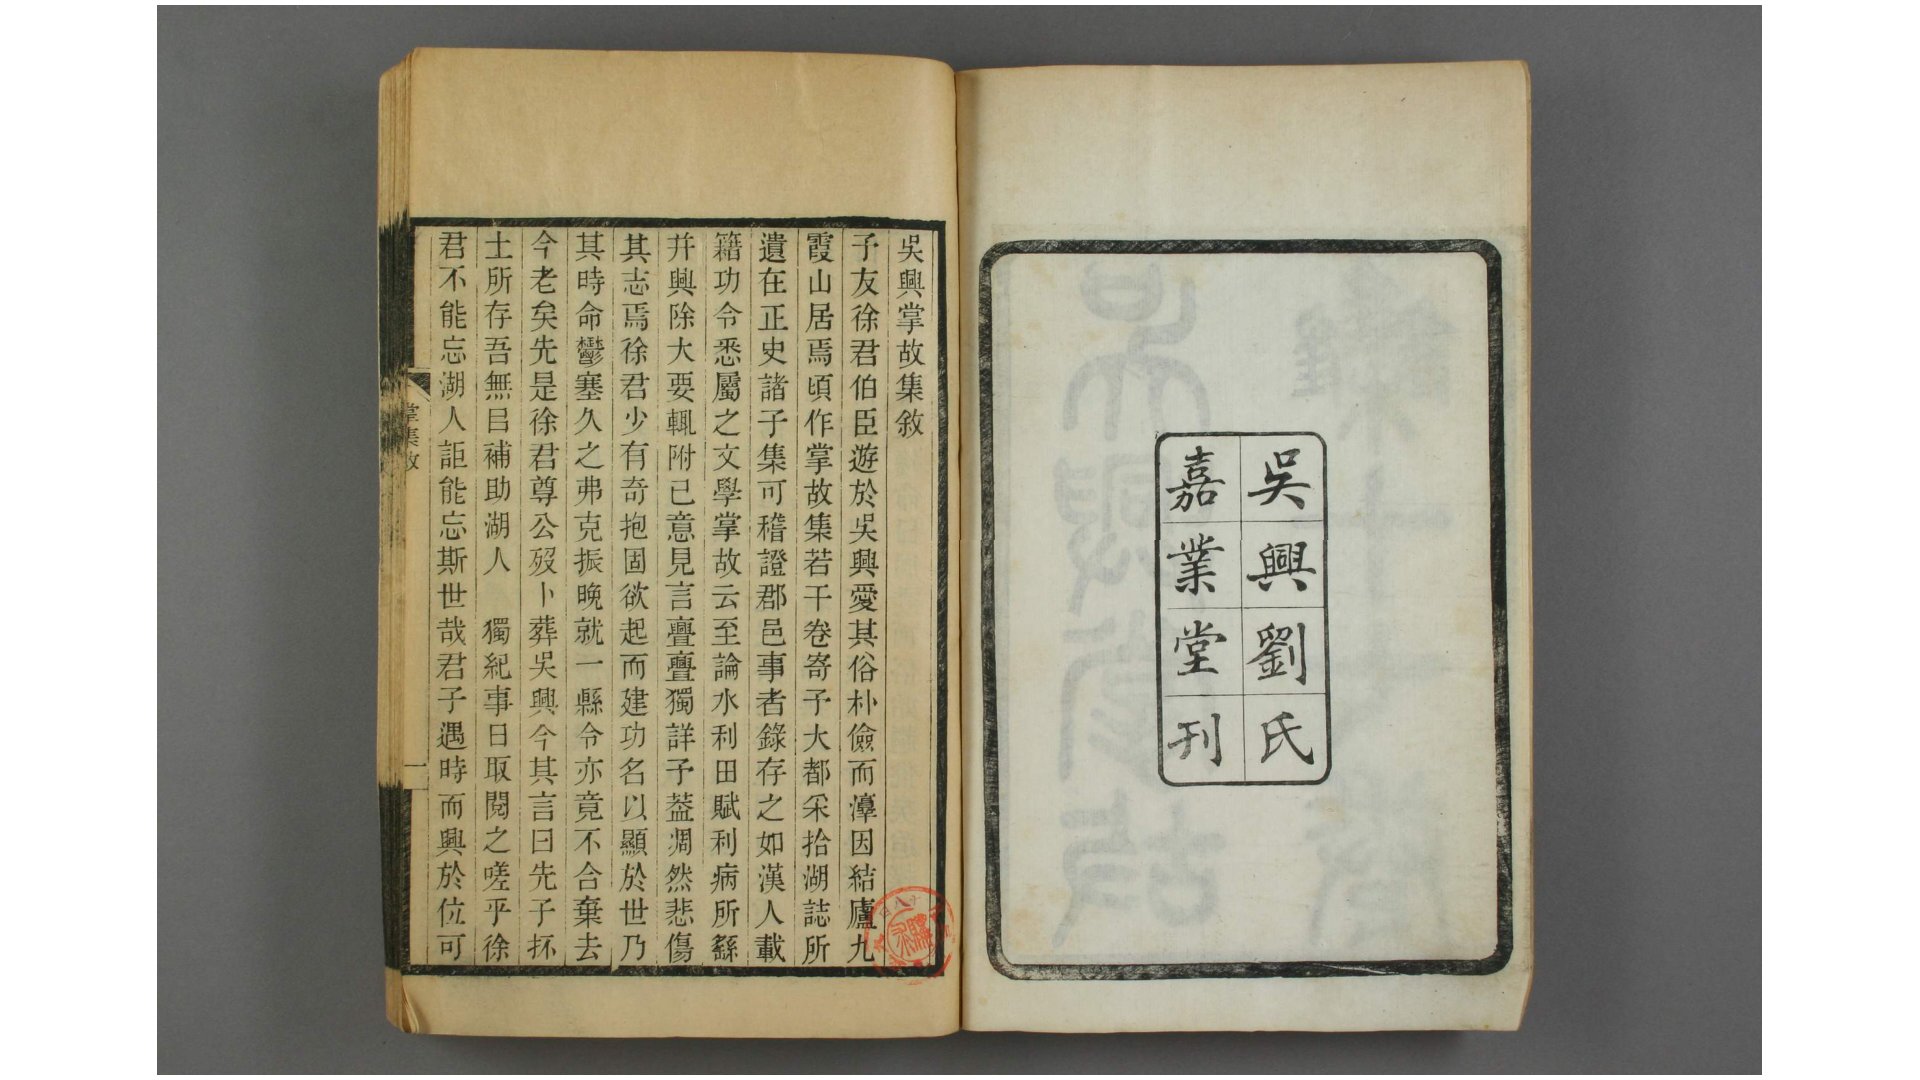 吳興劉氏
嘉業堂刊
吳興掌故集敘
子友徐君伯臣遊於吳興愛其俗朴儉而漳因結廬九
霞山居焉頃作掌故集若干卷寄子大都采拾湖誌所
遺在正史諸子集可稽證郡邑事者錄存之如漢人載
籍功令悉屬之文學掌故云至論水利田賦利病所繇
幷興除大要輒附己意見言亹亹獨詳予葢凋然悲傷
其志焉徐君少有奇抱固欲起而建功名以顯於世乃
其時命鬱塞久之弗克振晚就一縣令亦竟不合棄去
今老矣先是徐君尊公歿卜葬吳興今其言曰先子抔
土所存吾無㠯補助湖人 獨紀事日取閱之嗟乎徐
君不能忘湖人詎能忘斯世哉君子遇時而興於位可
掌集敘
一